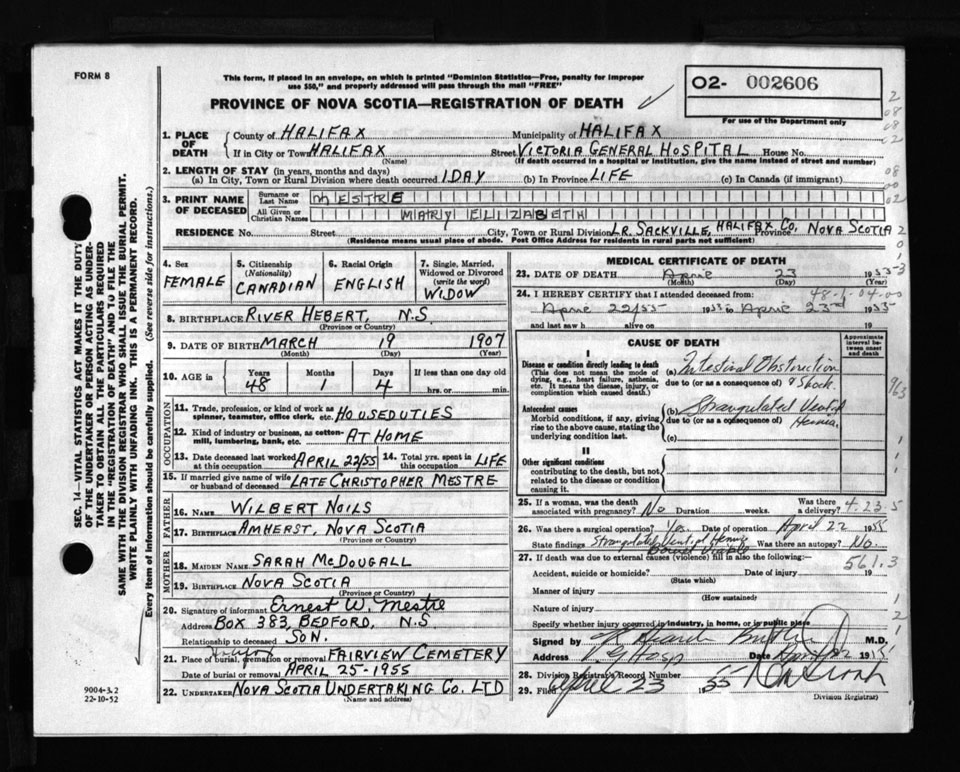 FORM 8
This form, if placed in an envelope, on which is printed "Dominion Statistics—Free, penalty for improper
use $50," and properly addressed will pass through the mail "FREE"
PROVINCE OF NOVA SCOTIA—REGISTRATION OF DEATH
O2- 002606
For use of the Department only
1. PLACE OF DEATH
County of HALIFAX Municipality of HALIFAX
If in City or Town HALIFAX Street VICTORIA GENERAL HOSPITAL House No.
(Name) (If death occurred in a hospital or institution, give the name instead of street and number)
2. LENGTH OF STAY (in years, months and days)
(a) In City, Town or Rural Division where death occurred 1 DAY (b) In Province LIFE (c) In Canada (if immigrant)
3. PRINT NAME OF DECEASED
Surname or Last Name MESTRE
All Given or Christian Names MARY ELIZABETH
RESIDENCE No. Street City, Town or Rural Division LR. SACKVILLE, HALIFAX CO, Province NOVA SCOTIA
(Residence means usual place of abode. Post Office Address for residents in rural parts not sufficient)
4. Sex FEMALE
5. Citizenship (Nationality) CANADIAN
6. Racial Origin ENGLISH
7. Single, Married, Widowed or Divorced (write the word) WIDOW
8. BIRTHPLACE RIVER HEBERT, N.S.
(Province or Country)
9. DATE OF BIRTH MARCH 19 1907
(Month) (Day) (Year)
10. AGE in Years 48 Months 1 Days 4 If less than one day old hrs. or min.
OCCUPATION
11. Trade, profession, or kind of work as spinner, teamster, office clerk, etc. HOUSEDUTIES
12. Kind of industry or business, as cotton-mill, lumbering, bank, etc. AT HOME
13. Date deceased last worked at this occupation APRIL 22/55 14. Total yrs. spent in this occupation LIFE
15. If married give name of wife or husband of deceased LATE CHRISTOPHER MESTRE
FATHER
16. NAME WILBERT NOILS
17. BIRTHPLACE AMHERST, NOVA SCOTIA
(Province or Country)
MOTHER
18. MAIDEN NAME SARAH McDOUGALL
19. BIRTHPLACE NOVA SCOTIA
(Province or Country)
20. Signature of informant Ernest W. Mestre
Address BOX 383, BEDFORD, N.S.
Relationship to deceased SON.
21. Place of burial, cremation or removal FAIRVIEW CEMETERY
Date of burial or removal APRIL 25-1955
22. UNDERTAKER NOVA SCOTIA UNDERTAKING CO. LTD
(Name and address)
MEDICAL CERTIFICATE OF DEATH
23. DATE OF DEATH April 23 1955
(Month) (Day)
24. I HEREBY CERTIFY that I attended deceased from:
48-1-04-00
April 22/55 1955 to April 23rd 1955
and last saw h alive on 19
CAUSE OF DEATH
Approximate interval between onset and death
I
Disease or condition directly leading to death
(This does not mean the mode of dying, e.g., heart failure, asthenia, etc. It means the disease, injury, or complication which caused death.)
(a) Intestinal Obstruction
due to (or as a consequence of) & Shock.
Antecedent causes
Morbid conditions, if any, giving rise to the above cause, stating the underlying condition last.
(b) Strangulated Ventral
due to (or as a consequence of) Hernia.
(c)
II
Other significant conditions
contributing to the death, but not related to the disease or condition causing it.
25. If a woman, was the death associated with pregnancy? No Duration weeks. Was there a delivery?
4.23.5
26. Was there surgical operation? Yes. Date of operation April 22 1955
State findings Strangulated Ventral Hernia Was there an autopsy? No.
Bowel Viable
27. If death was due to external causes (violence) fill in also the following:
561.3
Accident, suicide or homicide? Date of injury 19
(State which)
Manner of injury
(How sustained)
Nature of injury
Specify whether injury occurred in industry, in home, or in public place
Signed by M.D.
Address V.G. Hosp Date
28. Division Registrar's Record Number
29. Filed April 23 1955
Division Registrar)
SEC. 14—VITAL STATISTICS ACT MAKES IT THE DUTY
OF THE UNDERTAKER OR PERSON ACTING AS UNDER-
TAKER TO OBTAIN ALL THE PARTICULARS REQUIRED
IN THE "REGISTRATION OF DEATH" AND TO FILE THE
SAME WITH THE DIVISION REGISTRAR WHO SHALL ISSUE THE BURIAL PERMIT.
WRITE PLAINLY WITH UNFADING INK. THIS IS A PERMANENT RECORD.
Every item of information should be carefully supplied. (See reverse side for instructions.)
9004-3.2
22-10-52